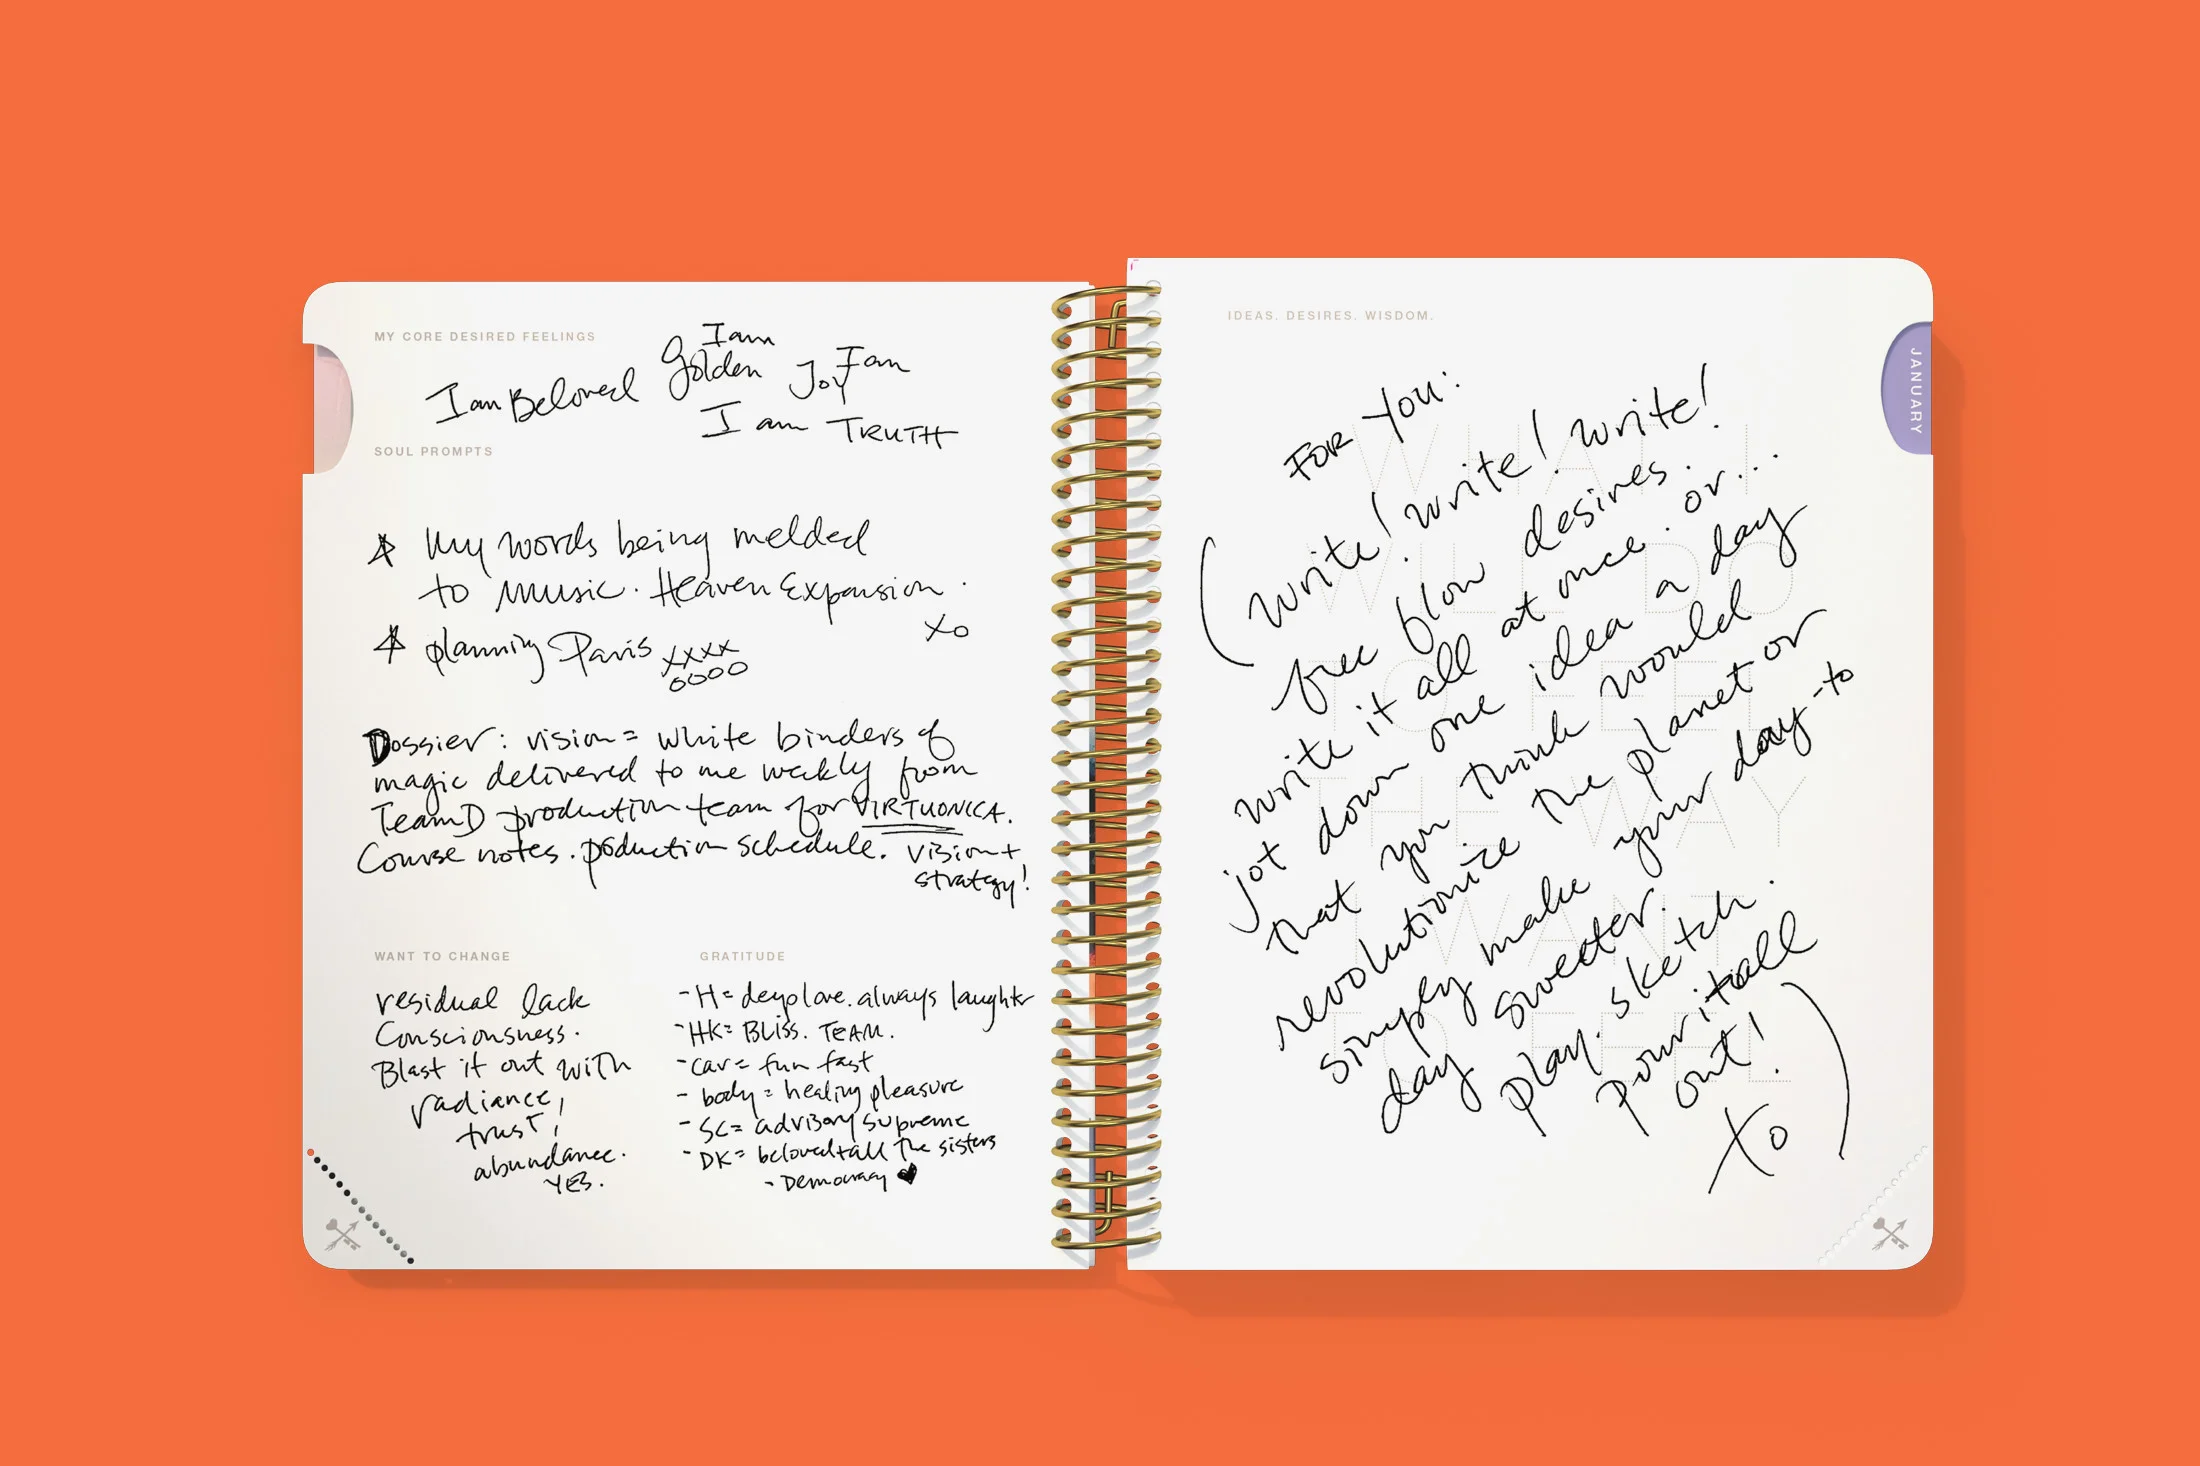 MY CORE DESIRED FEELINGS
I am Beloved
I am
Golden
I am
Joy
I am TRUTH
SOUL PROMPTS
My words being melded
to music. Heaven Expansion.
xo
planning Paris xxxx
oooo
Dossier: vision = white binders of
magic delivered to me weekly from
TeamD production team for VIRTUONICA.
Course notes. production schedule. vision +
strategy!
WANT TO CHANGE
residual lack
Consciousness.
Blast it out with
radiance,
trust,
abundance.
YES.
GRATITUDE
- H = deep love. always laughter
- HK = BLISS. TEAM.
- car = fun fast
- body = healing pleasure
- SC = advisory supreme
- DK = beloved + all the sisters
- Democracy
IDEAS. DESIRES. WISDOM.
JANUARY
FOR YOU:
(Write! write! write!
free flow desires.
write it all at once. or...
jot down one idea a day
that you think would
revolutionize the planet or
simply make your day-to
day sweeter.
play. sketch.
pour it all
out!)
xo
WHAT
WILL I DO
TO FEEL
THE WAY
I WANT
TO FEEL